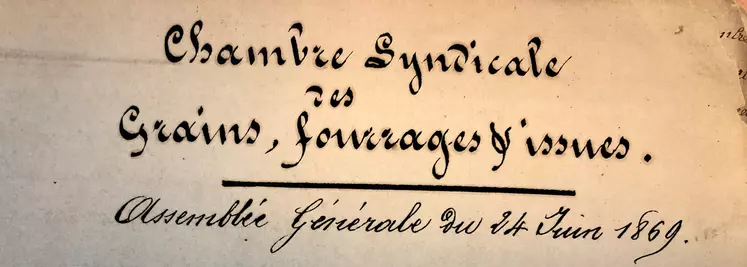 Chambre Syndicale
des
Grains, fourrages & issues.
Assemblée Générale du 24 Juin 1869.